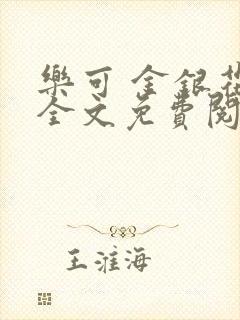 樂可 金銀花
全文免費閱
王淮海